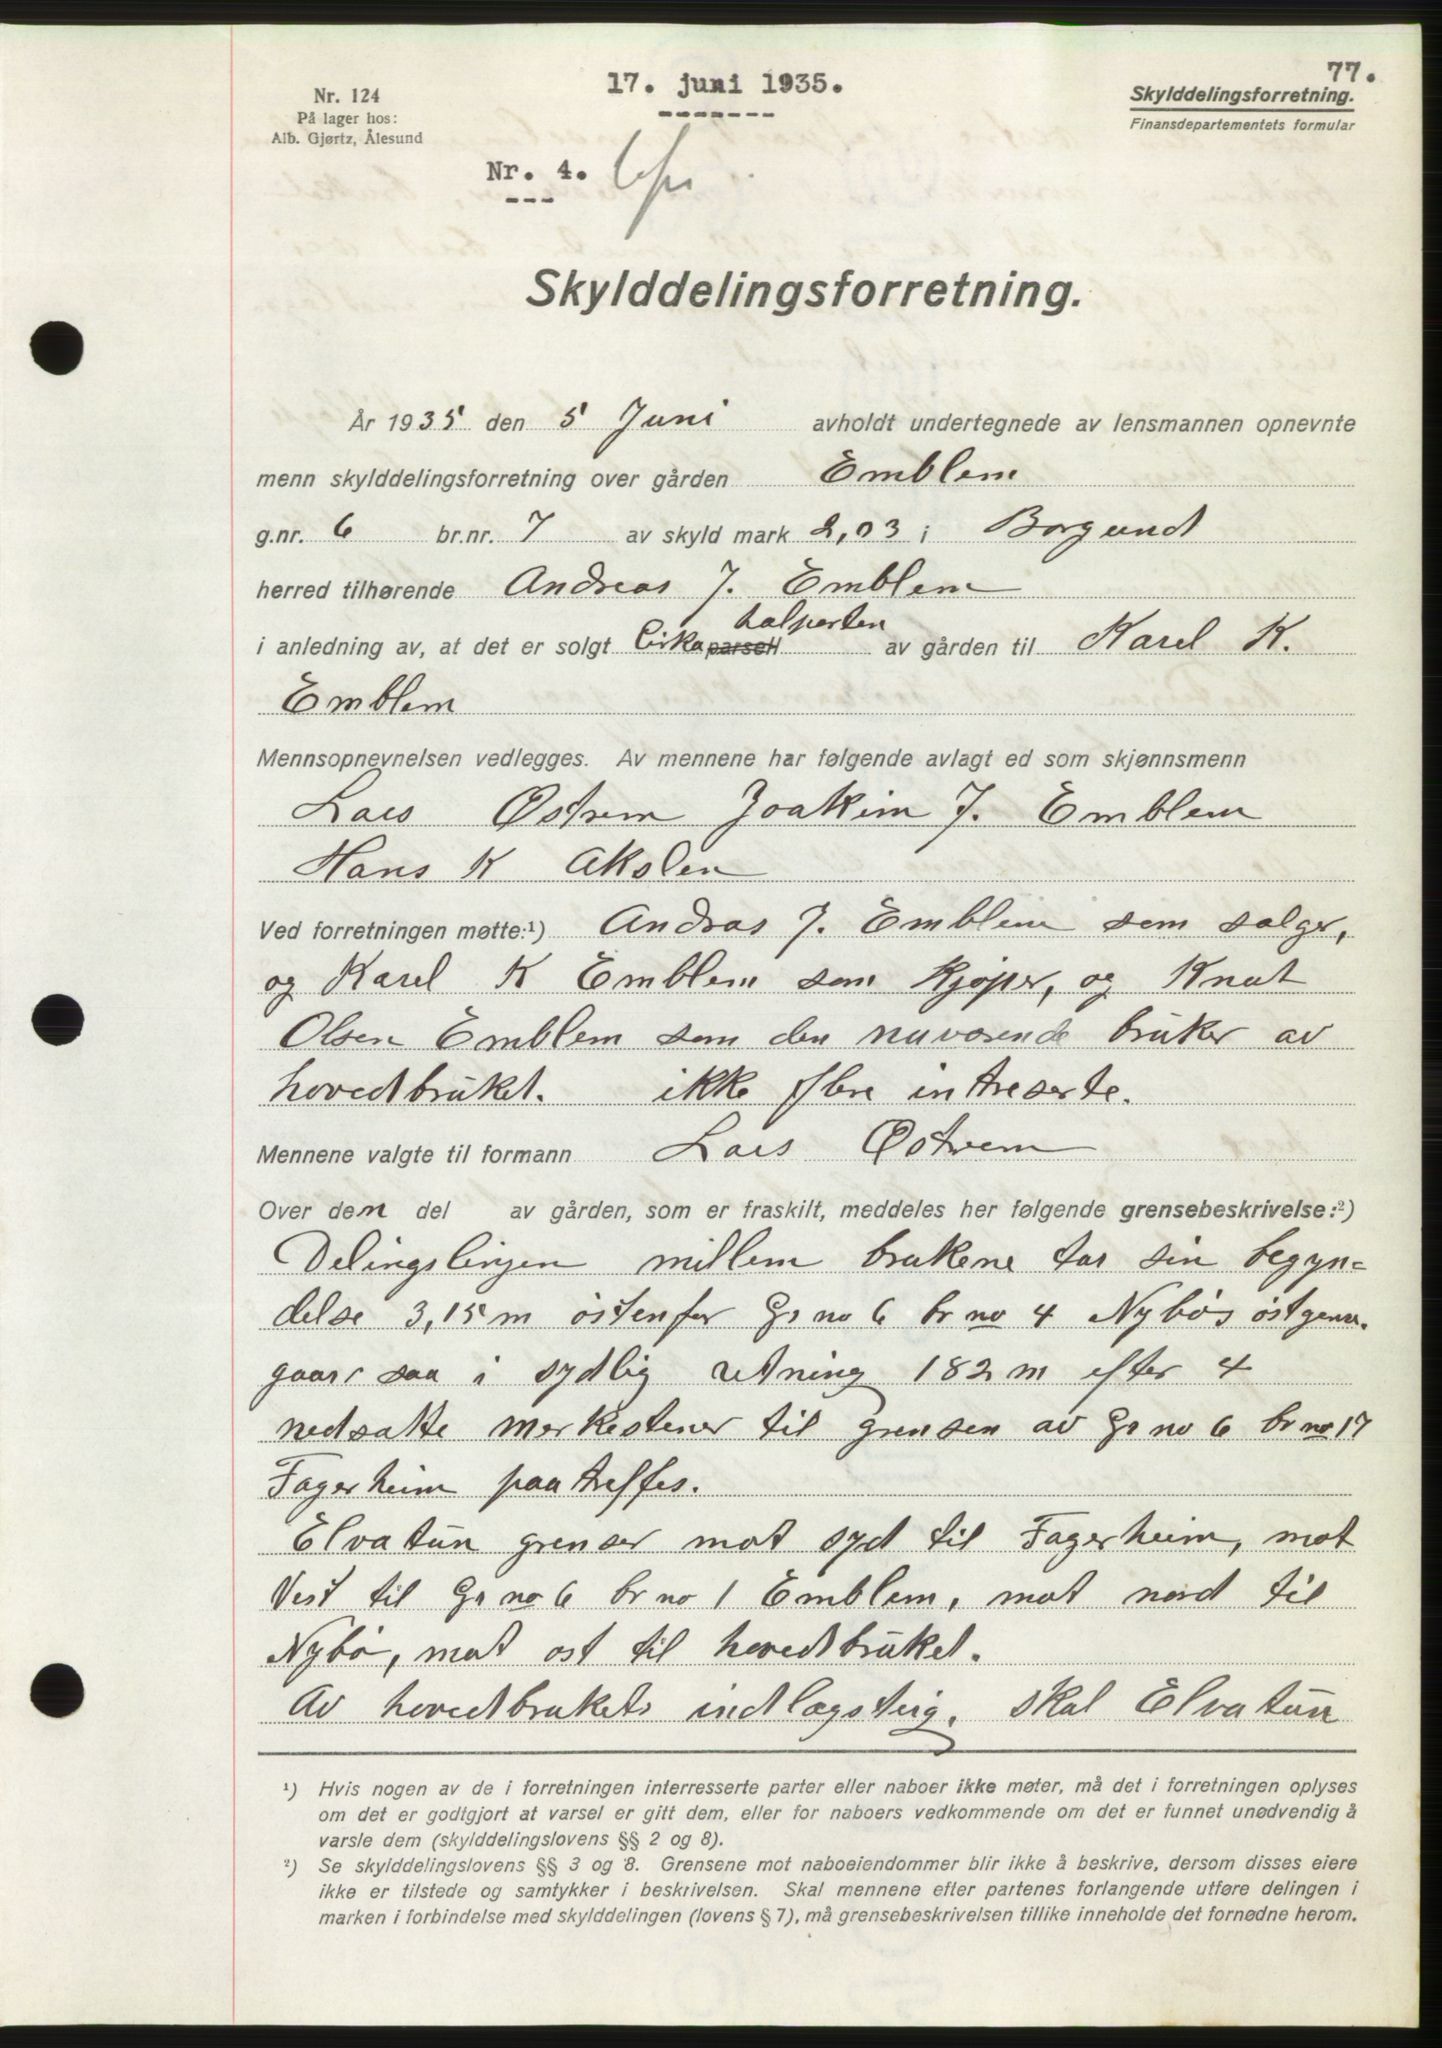 77.
17. juni 1935.
Nr. 124
På lager hos:
Alb. Gjørtz, Ålesund
Skylddelingsforretning.
Finansdepartementets formular
Nr. 4.
Skylddelingsforretning.
År 1935 den 5 Juni avholdt undertegnede av lensmannen opnevnte
menn skylddelingsforretning over gården Emblem
g.nr. 6 br.nr. 7 av skyld mark 2,03 i Borgund
herred tilhørende Andreas J. Emblem
halparten
i anledning av, at det er solgt Cirka parsell av gården til Karel K.
Emblem
Mennsopnevnelsen vedlegges. Av mennene har følgende avlagt ed som skjønnsmenn
Lars Østrem Joakim J. Emblem
Hans K Akslen
Ved forretningen møtte:¹) Andras J. Emblem som sælger,
og Karel K Emblem som Kjøper, og Knut
Olsen Emblem som den nuværende bruker av
hovedbruket. ikke flere intreserte.
Mennene valgte til formann Lars Østrem
Over den del av gården, som er fraskilt, meddeles her følgende grensebeskrivelse:²)
Delingslinjen millem brukene tar sin begyn=
delse 3,15 m østenfor Gr no 6 br no 4 Nybøs østgense.
gaar saa i sydlig retning 182 m efter 4
nedsatte merkestener til grensen av Gr no 6 br no 17
Fagerheim paatreffes.
Elvatun grenser mot syd til Fagerheim, mot
Vest til Gr no 6 br no 1 Emblem, mot nord til
Nybø, mot øst til hovedbruket.
Av hovedbrukets indlægsteig, skal Elvatun
¹) Hvis nogen av de i forretningen interresserte parter eller naboer ikke møter, må det i forretningen oplyses
om det er godtgjort at varsel er gitt dem, eller for naboers vedkommende om det er funnet unødvendig å
varsle dem (skylddelingslovens §§ 2 og 8).
²) Se skylddelingslovens §§ 3 og 8. Grensene mot naboeiendommer blir ikke å beskrive, dersom disses eiere
ikke er tilstede og samtykker i beskrivelsen. Skal mennene efter partenes forlangende utføre delingen i
marken i forbindelse med skylddelingen (lovens § 7), må grensebeskrivelsen tillike inneholde det fornødne herom.